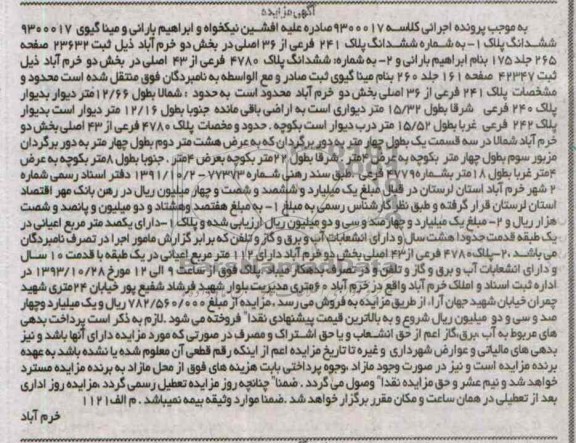 آگهی مزایده
به موجب پرونده اجرائی کلاسه ۹۳۰۰۰۱۷ صادره علیه افشین نیکخواه و ابراهیم بارانی و مینا گیوی ۹۳۰۰۰۱۷
ششدانگ پلاک ۱- به شماره ششدانگ پلاک ۲۴۱ فرعی از ۳۶ اصلی در بخش دو خرم آباد ذیل ثبت ۲۳۶۳۲ صفحه
۲۶۵ جلد ۱۷۵ بنام ابراهیم بارانی و ۲- به شماره: ششدانگ پلاک ۴۷۸۰ فرعی از ۴۳ اصلی در بخش دو خرم آباد ذیل
ثبت ۴۲۳۴۷ صفحه ۱۶۱ جلد ۲۶۰ بنام مینا گیوی ثبت صادر و مع الواسطه به نامبردگان فوق منتقل شده است محدود و
مشخصات پلاک ۲۴۱ فرعی از ۳۶ اصلی بخش دو خرم آباد محدود است به حدود : شمالا بطول ۱۲/۶۶ متر دیوار بدیوار
پلاک ۲۴۰ فرعی شرقا بطول ۱۵/۳۲ متر دیواری است به اراضی باقی مانده جنوبا بطول ۱۲/۱۶ متر دیوار است بدیوار
پلاک ۲۴۲ فرعی غربا بطول ۱۵/۵۲ متر درب دیوار است بکوچه . حدود و مخصات پلاک ۴۷۸۰ فرعی از ۴۳ اصلی بخش دو
خرم آباد شمالا در سه قسمت یک بطول چهار متر به دور برگردان که به عرض هشت متر دوم بطول چهار متر به دور برگردان
مزبور سوم بطول چهار متر بکوچه به عرض ۴ متر . شرقا بطول ۲۲ متر بکوچه بعرض ۴ متر . جنوبا بطول ۸ متر بکوچه به عرض
۴ متر غربا بطول ۱۸ متر بشماره ۴۷۷۹ فرعی . طبق سند رهنی شماره ۷۷۳۷۳ - ۱۳۹۱/۱۰/۲ دفتر اسناد رسمی شماره
۲ شهر خرم آباد استان لرستان در قبال مبلغ یک میلیارد و ششصد و شصت و چهار میلیون ریال در رهن بانک مهر اقتصاد
استان لرستان قرار گرفته و طبق نظر کارشناس رسمی به مبلغ ۱- به مبلغ هفتصد وهشتاد و دو میلیون و پانصد و شصت
هزار ریال و ۲- مبلغ یک میلیارد و چهارصد و سی و دو میلیون ریال ارزیابی شده و پلاک ۱- دارای یکصد متر اعیانی در
یک طبقه قدمت حدودا هشت سال و دارای انشعابات آب و برق و گاز و تلفن که برابر گزارش مامور اجرا در تصرف نامبردگان
می باشد . ۲- پلاک ۴۷۸۰ فرعی از ۴۳ اصلی بخش دو خرم آباد دارای ۱۱۲ متر مربع اعیانی در یک طبقه با قدمت ۱۰ سال
و دارای انشعابات آب و برق و گاز و تلفن و در تصرف بدهکار میباشد پلاک فوق از ساعت ۹ الی ۱۲ مورخ ۱۳۹۳/۱۰/۲۸ در
اداره ثبت اسناد و املاک خرم آباد واقع در خرم آباد ۶۰ متری مدیریت بلوار شهید فرشاد شفیع پور خیابان ۲۴ متری شهید
چمران خیابان شهید جهان آرا، از طریق مزایده به فروش می رسد . مزایده از مبلغ ۷۸۲/۵۶۰/۰۰۰ ریال و یک میلیارد وچهار
صد و سی و دو میلیون ریال شروع و به بالاترین قیمت پیشنهادی نقدا" فروخته می شود . لازم به ذکر است پرداخت بدهی
های مربوط به آب ،برق،گاز اعم از حق انشعاب و یا حق اشتراک و مصرف در صورتی که مورد مزایده دارای آنها باشد و نیز
بدهی های مالیاتی و عوارض شهرداری و غیره تا تاریخ مزایده اعم از اینکه رقم قطعی آن معلوم شده یا نشده باشد به عهده
برنده مزایده است و نیز در صورت وجود مازاد ،وجوه پرداختی بابت هزینه های فوق از محل مازاد به برنده مزایده مسترد
خواهد شد و نیم عشر و حق مزایده نقدا" وصول می گردد . ضمنا" چنانچه روز مزایده تعطیل رسمی گردد .مزایده روز اداری
بعد از تعطیلی در همان ساعت و مکان مقرر برگزار خواهد شد .ضمنا موارد وثیقه بیمه نمیباشد . م الف ۱۱۲۱
خرم آباد